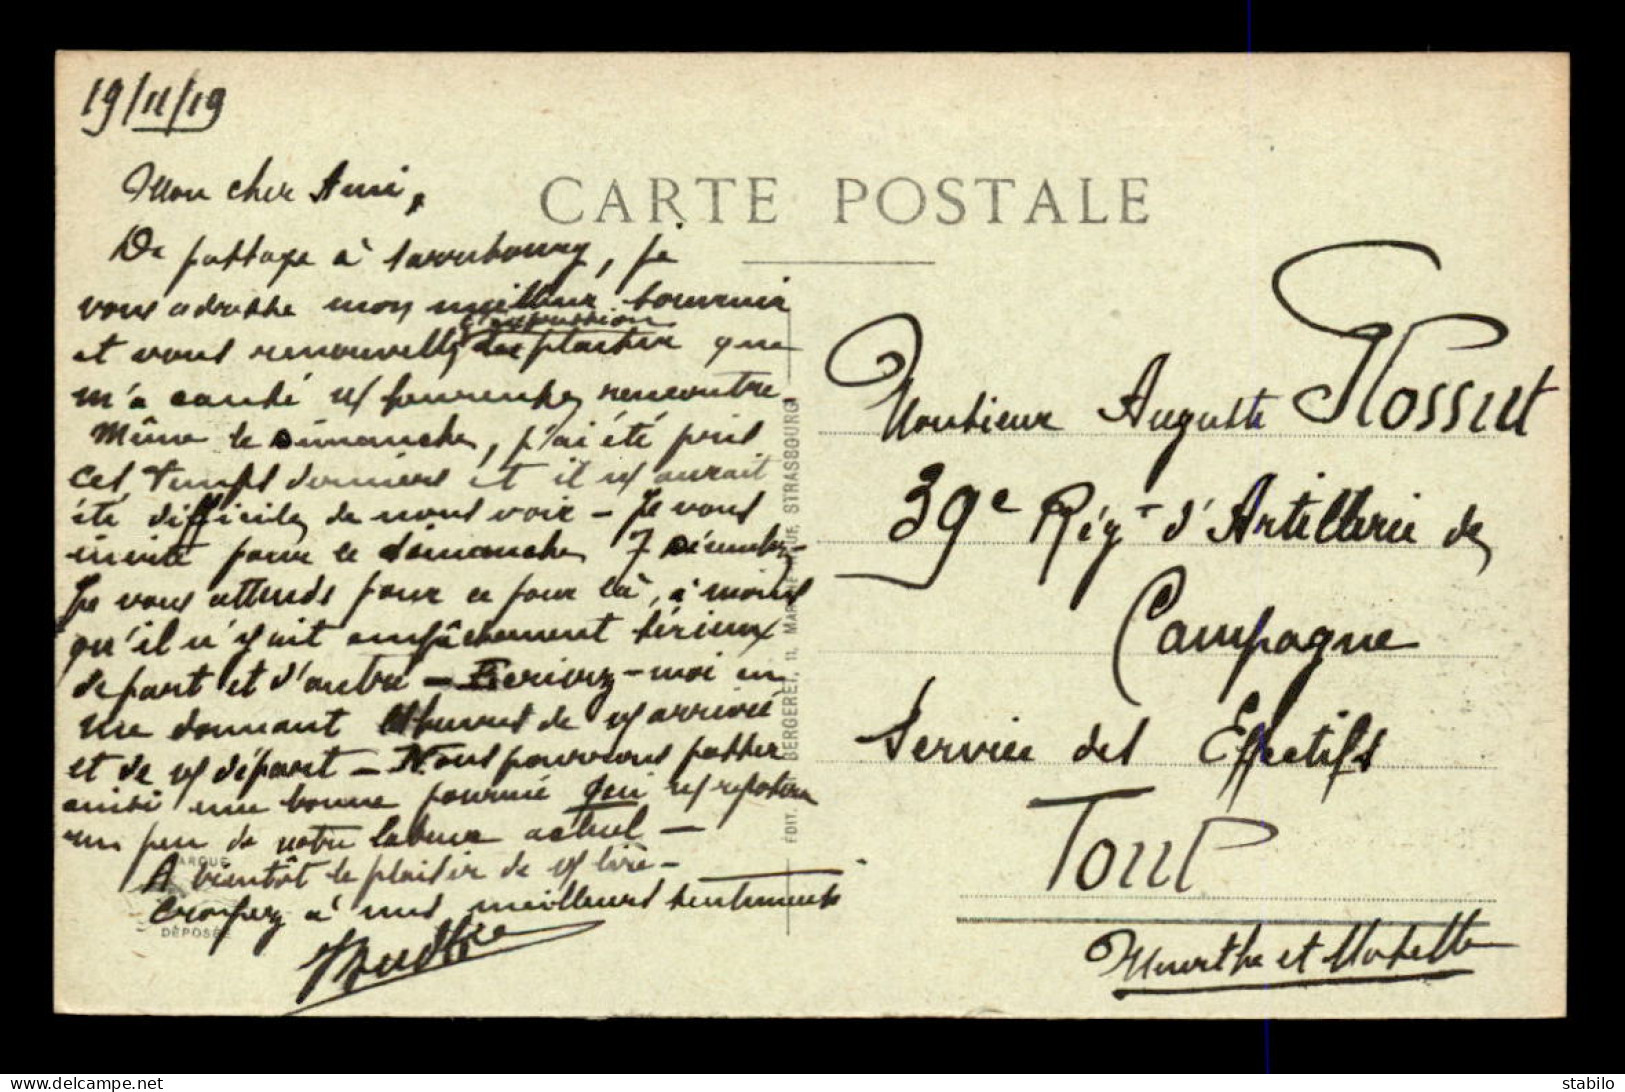 19/11/19
CARTE POSTALE
Mon cher Ami,
De passage à Sarrebourg, je
vous adresse mon meilleur souvenir
l'expression
et vous renouvelle du plaisir que
m'a causé v/ heureuse rencontre
Même le dimanche, j'ai été pris
ces temps derniers et il m'aurait
été difficile de nous voir - Je vous
invite pour le dimanche 7 Décembre -
Je vous attends pour ce jour là, à moins
qu'il n'y ait empêchement sérieux
de part et d'autre - Ecrivez-moi en
me donnant les heures de v/ arrivée
et de v/ départ - Nous pourrons passer
ainsi une bonne journée qui n/ reposera
un peu de notre labeur actuel -
A bientôt le plaisir de v/ lire -
Croyez à mes meilleurs sentiments
Monsieur Auguste Flossut
39e Régt d'Artillerie de
Campagne
Service des Effectifs
Toul
Meurthe et Moselle
EDIT. BERGERET, 11, STRASBOURG
MARQUE
DÉPOSÉE
stabilo
www.delcampe.net